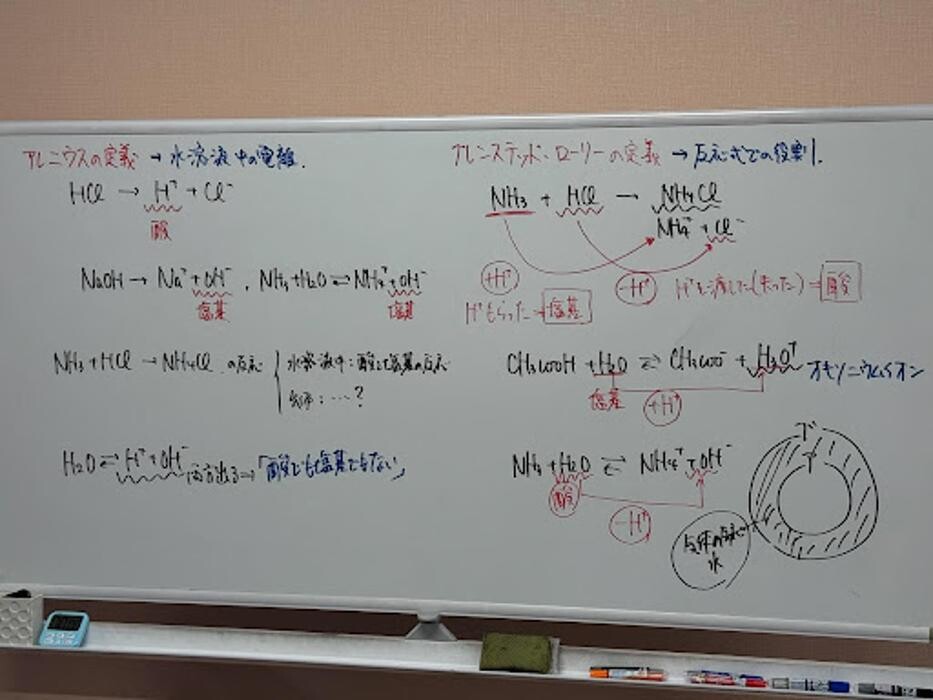 アレニウスの定義 → 水溶液中の電離.
HCl → H⁺ + Cl⁻
酸
NaOH → Na⁺ + OH⁻ , NH₃ + H₂O ⇄ NH₄⁺ + OH⁻
塩基 塩基
NH₃ + HCl → NH₄Cl の反応
水溶液中: 酸と塩基の反応
気体: …?
H₂O ⇄ H⁺ + OH⁻
両方出る⇒「酸でも塩基でもない」
ブレンステッド・ローリーの定義 → 反応式での役割.
NH₃ + HCl → NH₄Cl
NH₄⁺ + Cl⁻
+H⁺ -H⁺
H⁺もらった = 塩基
H⁺を渡した(失った) = 酸
CH₃COOH + H₂O ⇄ CH₃COO⁻ + H₃O⁺ オキソニウムイオン
塩基 +H⁺
NH₃ + H₂O ⇄ NH₄⁺ + OH⁻
酸
-H⁺
水